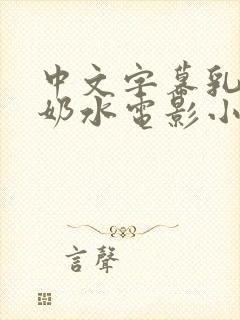 中文字幕乳
奶水电影小
言聲